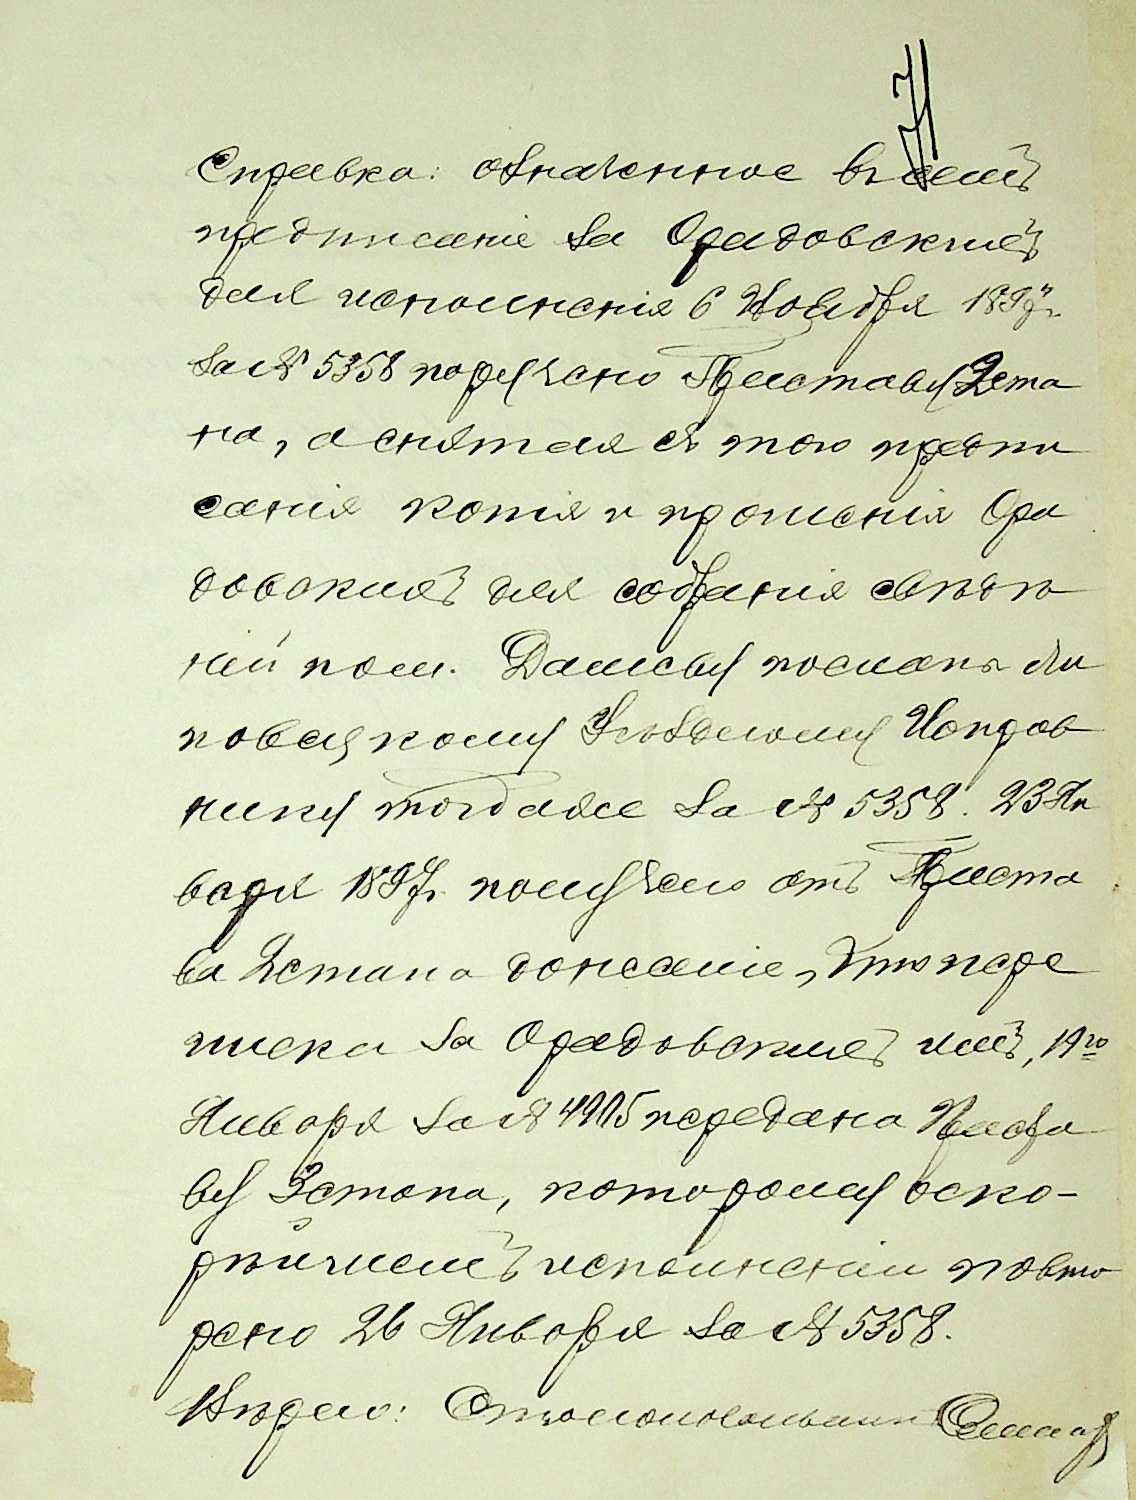 Справка: означенное въ семъ
предписаніе за Орадовскимъ
для исполненія 6 Ноября 189 г.
за № 5358 поручено Приставу 2 ста
на, а снятая съ того предпи
санія копія и прошенія Ора
довскимъ для собранія свѣдѣ
ній пом. посланы Ли
повецкому Уѣздному Исправ
нику тогдаже за № 5358. 23 Ян
варя 1897 г. получено отъ Приста
ва 2 стана донесеніе, что пере
писка за Орадовскимъ имъ, 19го
Января за № 4995 передана Приста
ву 3 стана, которому о ско-
рѣйшемъ исполненіи повто
рено 26 Января за № 5358.
Вѣрно: Столоначальникъ